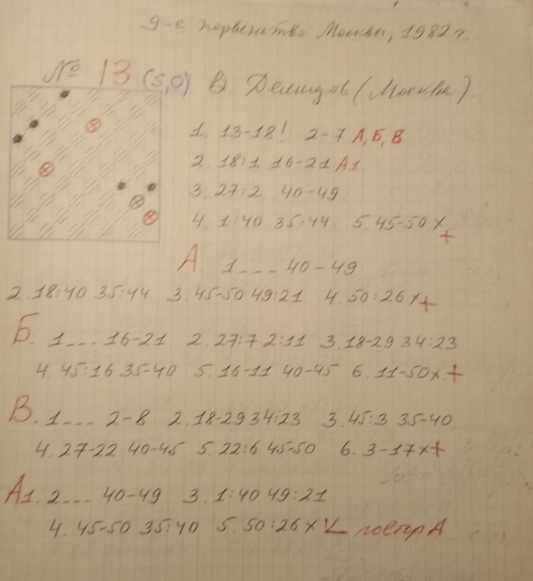 9-е первенство Москвы, 1982 г.
№ 13 (5,0) В. Демидов (Москва).
1. 13-18! 2-7 А, Б, В
2. 18:1 16-21 А1
3. 27:2 40-49
4. 1:40 35:44 5. 45-50 х +
А 1... 40-49
2. 18:40 35:44 3. 45-50 49:21 4. 50:26 х +
Б. 1... 16-21 2. 27:7 2:11 3. 18-29 34:23
4. 45:16 35-40 5. 16-11 40-45 6. 11-50 х +
В. 1... 2-8 2. 18-29 34:23 3. 45:3 35-40
4. 27-22 40-45 5. 22:6 45-50 6. 3-17 х +
А1. 2... 40-49 3. 1:40 49:21
4. 45-50 35:40 5. 50:26 х